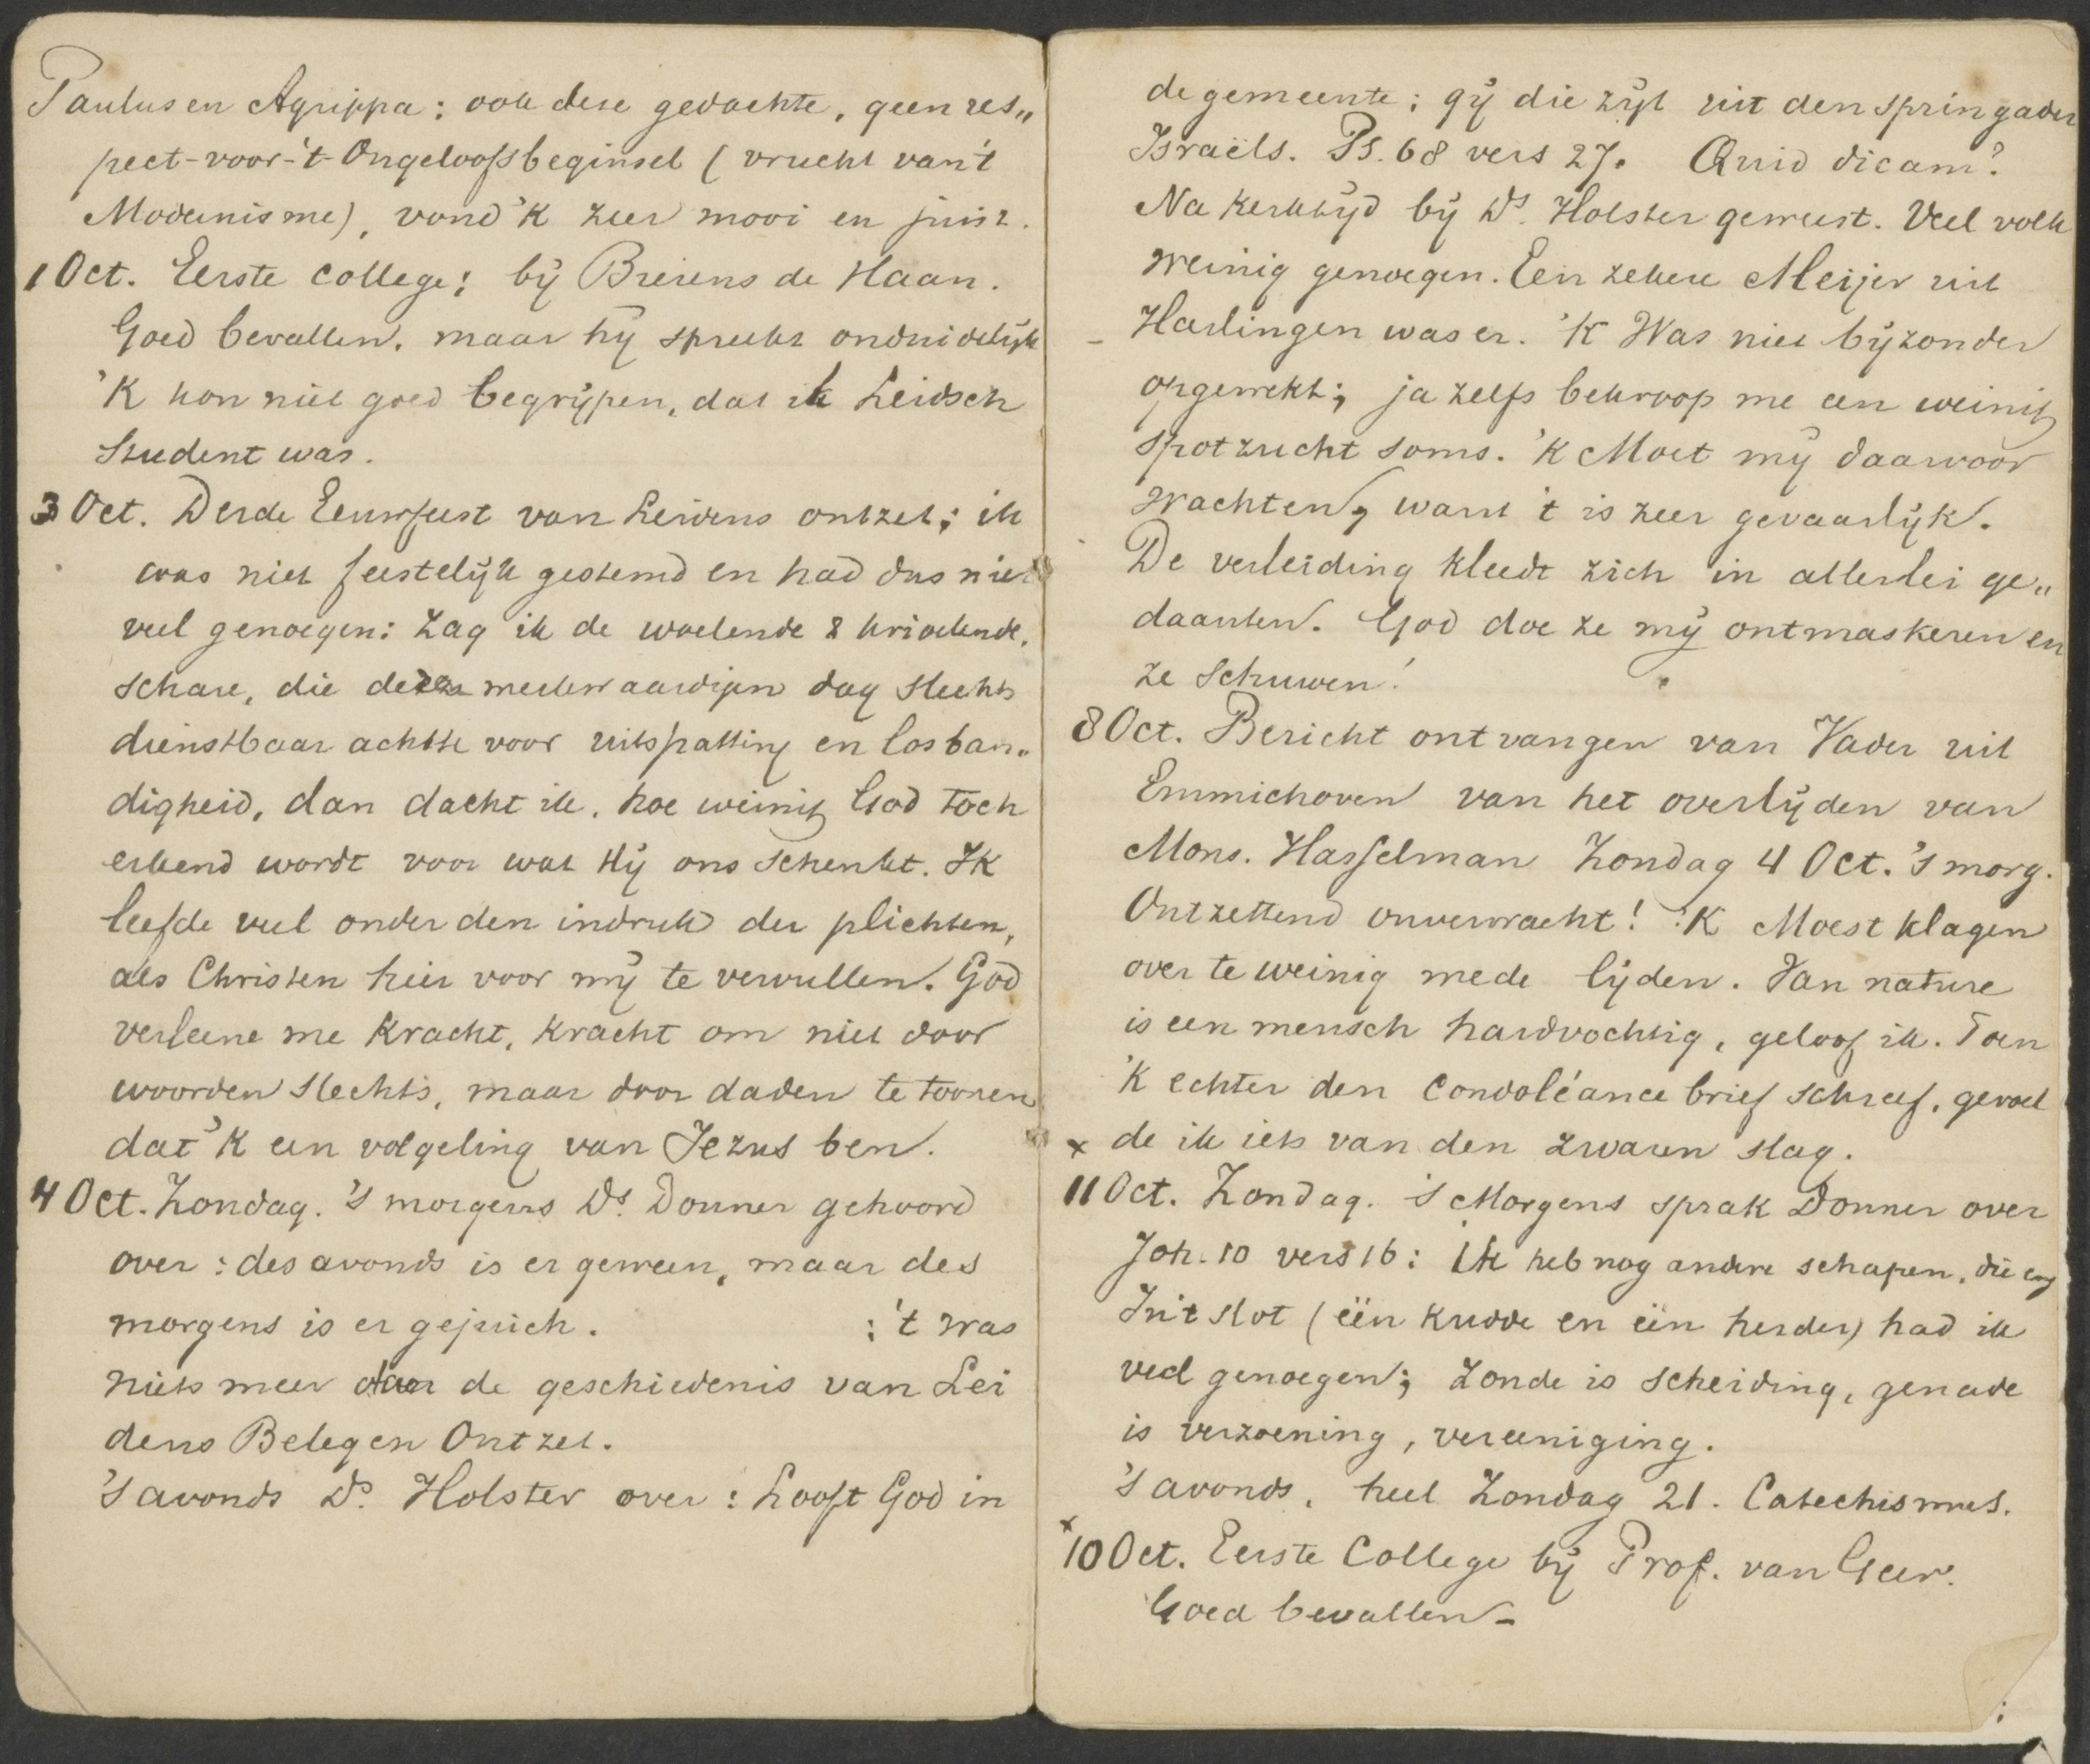 Paulus en Agrippa: ook deze gedachte, geen res„
pect-voor-'t-Ongeloofsbeginsel (vrucht van 't
Modernisme), vond 'k zeer mooi en juist.
1 Oct. Eerste college: bij Bierens de Haan.
Goed bevallen, maar hij spreekt onduidelijk
'K kon niet goed begrijpen, dat ik Leidsch
Student was.
3 Oct. Derde Eeuwfeest van Leidens ontzet; ik
was niet feestelijk gestemd en had dus niet
veel genoegen: Zag ik de woelende & krioelende,
schare, die deze merkwaardigen dag slechts
dienstbaar achtte voor uitspatting en losban„
digheid, dan dacht ik, hoe weinig God toch
erkend wordt voor wat Hij ons schenkt. Ik
leefde veel onder den indruk der plichten,
als Christen hier voor mij te vervullen. God
verleene me kracht, kracht om niet door
woorden slechts, maar door daden te toonen
dat 'k een volgeling van Jezus ben.
4 Oct. Zondag. 's morgens Ds. Donner gehoord
over: des avonds is er geween, maar des
morgens is er gejuich. : 't was
niets meer dan de geschiedenis van Lei
dens Beleg en Ontzet.
's avonds Ds. Holster over: Looft God in
de gemeente; gij die zijt uit den springader
Israëls. Ps. 68 vers 27. Quid dicam?
Na kerktijd bij Ds. Holster geweest. Veel volk
weinig genoegen. Een zekere Meijer uit
Harlingen was er. 'K Was niet bijzonder
opgewekt; ja zelfs bekroop me een weinig
spotzucht soms. 'K Moet mij daarvoor
wachten, want 't is zeer gevaarlijk.
De verleiding kleedt zich in allerlei ge„
daanten. God doe ze mij ontmaskeren en
ze schuwen!
8 Oct. Bericht ontvangen van Vader uit
Emmichoven van het overlijden van
Mons. Hasselman Zondag 4 Oct. 's morg.
Ontzettend onverwacht! 'K Moest klagen
over te weinig mede lijden. Van nature
is een mensch hardvochtig, geloof ik. Toen
'k echter den Condoléance brief schreef, gevoel
x de ik iets van den zwaren slag.
11 Oct. Zondag. 's Morgens sprak Donner over
Joh. 10 vers 16: Ik heb nog andere schapen, die enz
In 't slot (één kudde en één herder) had ik
veel genoegen; zonde is scheiding, genade
is verzoening, vereeniging.
's avonds, heel Zondag 21. Catechismus.
x 10 Oct. Eerste College bij Prof. van Geer.
Goed bevallen-